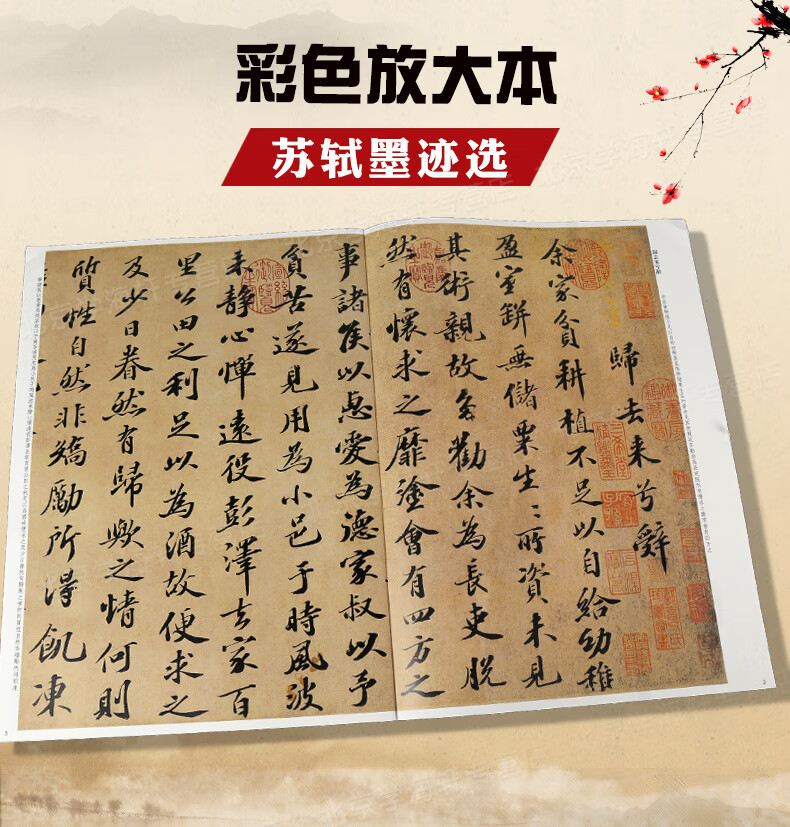 彩色放大本
苏轼墨迹选
歸去来兮辭
余家貧耕植不足以自給幼稚
盈室缾無儲粟生〻所資未見
其術親故多勸余為長吏脱
然有懷求之靡塗會有四方之
事諸侯以惠愛為德家叔以予
貧苦遂見用為小邑于時風波
未静心憚遠役彭澤去家百
里公田之利足以為酒故便求之
及少日眷然有歸歟之情何則
質性自然非矯勵所得飢凍
2
3